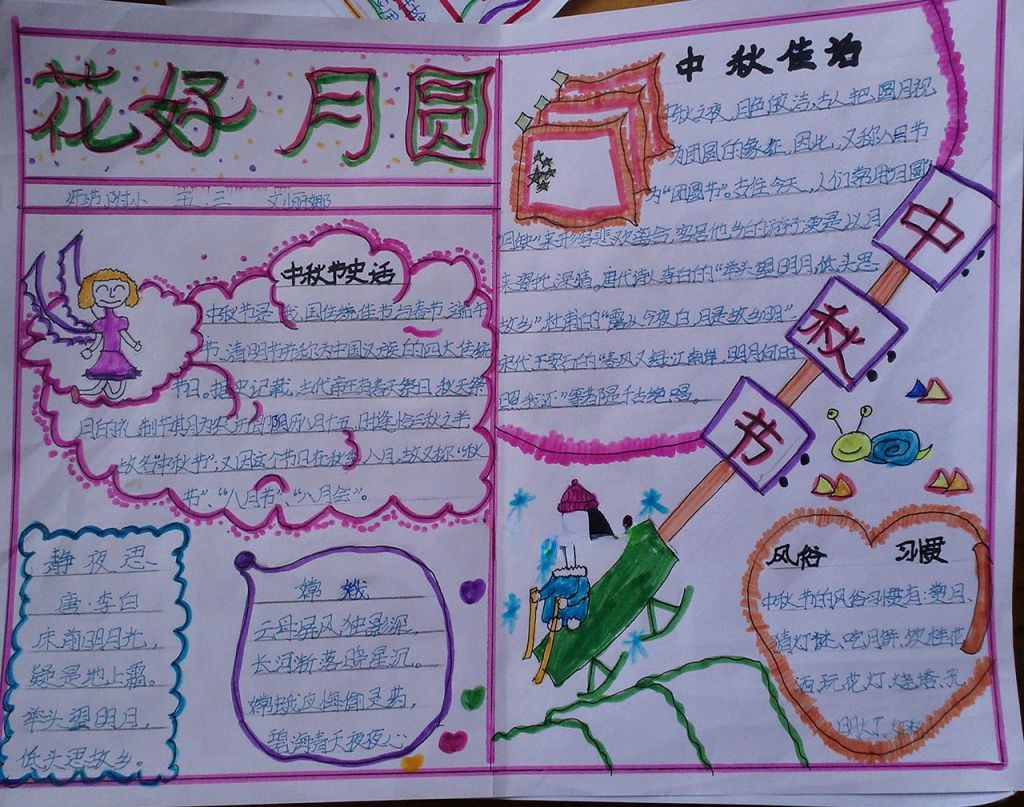 花好月圆
师范附小 五.三 文丽娜
中秋节史话
中秋节是我国传统佳节与春节、端午
节、清明节并称为中国汉族的四大传统
节日。据史记载,古代帝王有春天祭日、秋天祭
月的礼制节期为农历阴历八月十五,时逢恰三秋之半
故名"中秋节";又因这个节日在秋季八月,故又称"秋
节"、"八月节"、"八月会"。
静夜思
唐·李白
床前明月光,
疑是地上霜。
举头望明月,
低头思故乡。
嫦娥
云母屏风独影深,
长河渐落晓星沉。
嫦娥应悔偷灵药,
碧海青天夜夜心
中秋佳话
中秋之夜,月色皎洁,古人把圆月视
为团圆的象征,因此,又称八月节
为"团圆节"。古往今天,人们常用"月圆"
"月缺"来形容悲欢离合,客居他乡的游子更是以月
来寄托深情。唐代诗人李白的"举头望明月,低头思
故乡",杜甫的"露从今夜白,月是故乡明"
宋代王安石的"春风又绿江南岸,明月何时
照我还"等诗是千古绝唱。
中秋节
风俗 习惯
中秋节的风俗习惯有:赏月、
猜灯谜、吃月饼、饮桂花
酒、玩花灯、烧塔、孔
明灯